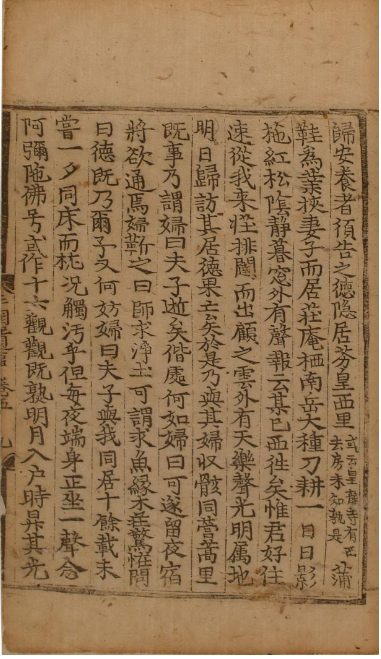 歸安養者須告之德隠居芬皇西里
或云皇龍寺有西
去房未知孰是
蒲
鞋爲業挾妻子而居莊庵栖南岳大種刀耕一日日影
拖紅松隂静暮窓外有聲報云某已西徃矣惟君好住
速從我来莊排闥而出顧之雲外有天樂聲光明属地
明日歸訪其居德果亡矣於是乃與其婦收骸同營蒿里
既事乃謂婦曰夫子逝矣偕處何如婦曰可遂留夜宿
將欲通焉婦靳之曰師求淨土可謂求魚緣木莊驚恠問
曰德既乃爾予又何妨婦曰夫子與我同居十餘載未
嘗一夕同床而枕况觸汚乎但每夜端身正坐一聲念
阿彌陁佛号或作十六觀觀既熟明月入户時昇其光